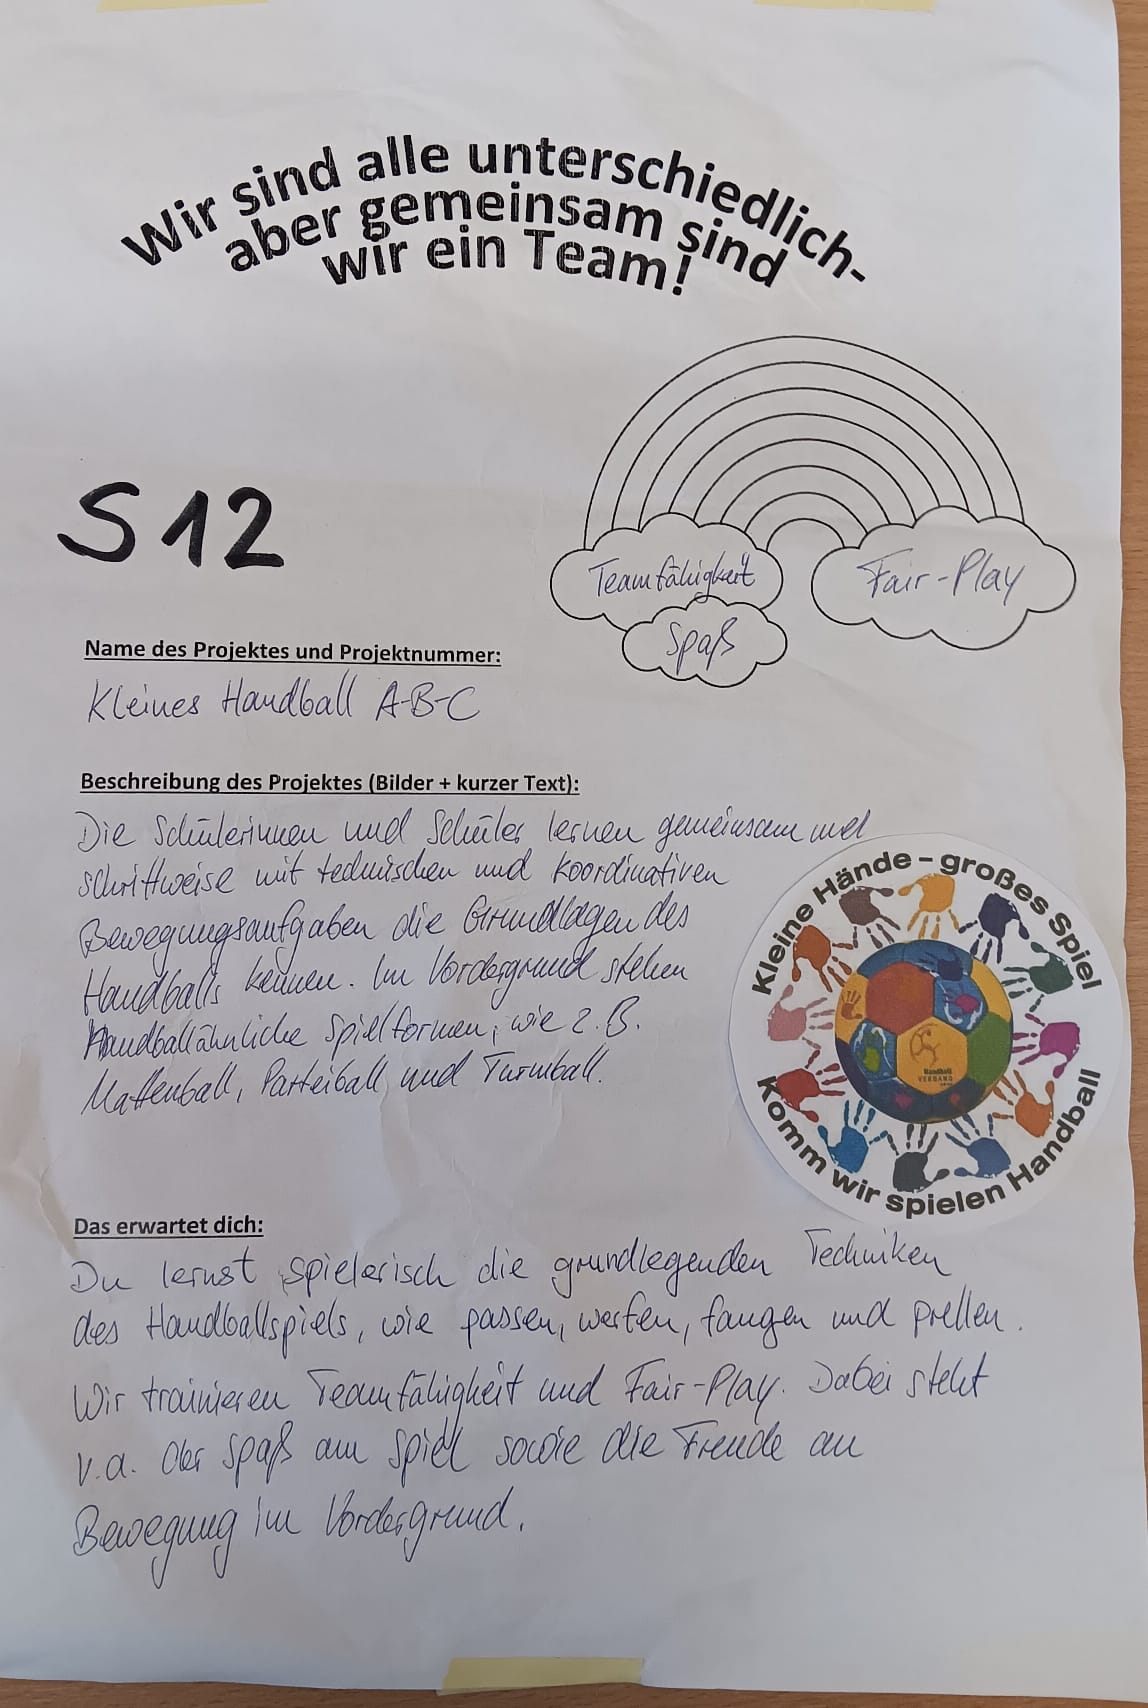 Wir sind alle unterschiedlich-
aber gemeinsam sind
wir ein Team!
S12
Teamfähigkeit
Fair-Play
Spaß
Name des Projektes und Projektnummer:
Kleines Handball A-B-C
Beschreibung des Projektes (Bilder + kurzer Text):
Die Schülerinnen und Schüler lernen gemeinsam und
schrittweise mit technischen und koordinativen
Bewegungsaufgaben die Grundlagen des
Handballs kennen. Im Vordergrund stehen
Handballähnliche Spielformen, wie z.B.
Mattenball, Parteiball und Turmball.
Kleine Hände – großes Spiel
Handball
VERBAND
Komm wir spielen Handball
Das erwartet dich:
Du lernst spielerisch die grundlegenden Techniken
des Handballspiels, wie passen, werfen, fangen und prellen.
Wir trainieren Teamfähigkeit und Fair-Play. Dabei steht
v.a. der Spaß am Spiel sowie die Freude an
Bewegung im Vordergrund.